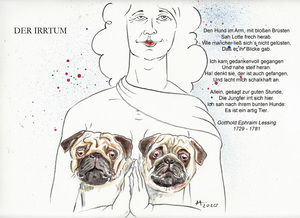 DER IRRTUM
Den Hund im Arm, mit bloßen Brüsten
Sah Lotte frech herab.
Wie mancher ließ sich's nicht gelüsten,
Daß er ihr Blicke gab.
Ich kam gedankenvoll gegangen
Und nahte steif heran.
Ha! denkt sie, der ist auch gefangen,
Und lacht mich schalkhaft an.
Allein, gesagt zur guten Stunde,
Die Jungfer irrt sich hier.
Ich sah nach ihrem bunten Hunde:
Es ist ein artig Tier.
Gotthold Ephraim Lessing
1729 - 1781